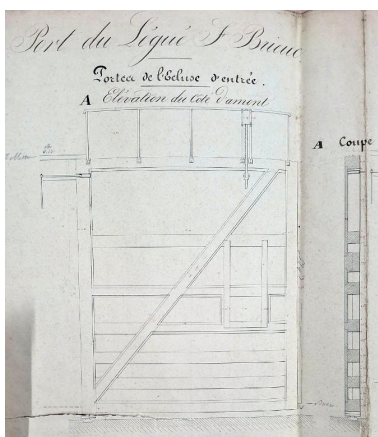 Port du Légué St Brieuc
Portes de l'Ecluse d'entrée.
A Elévation du Coté d'amont
A Coupe